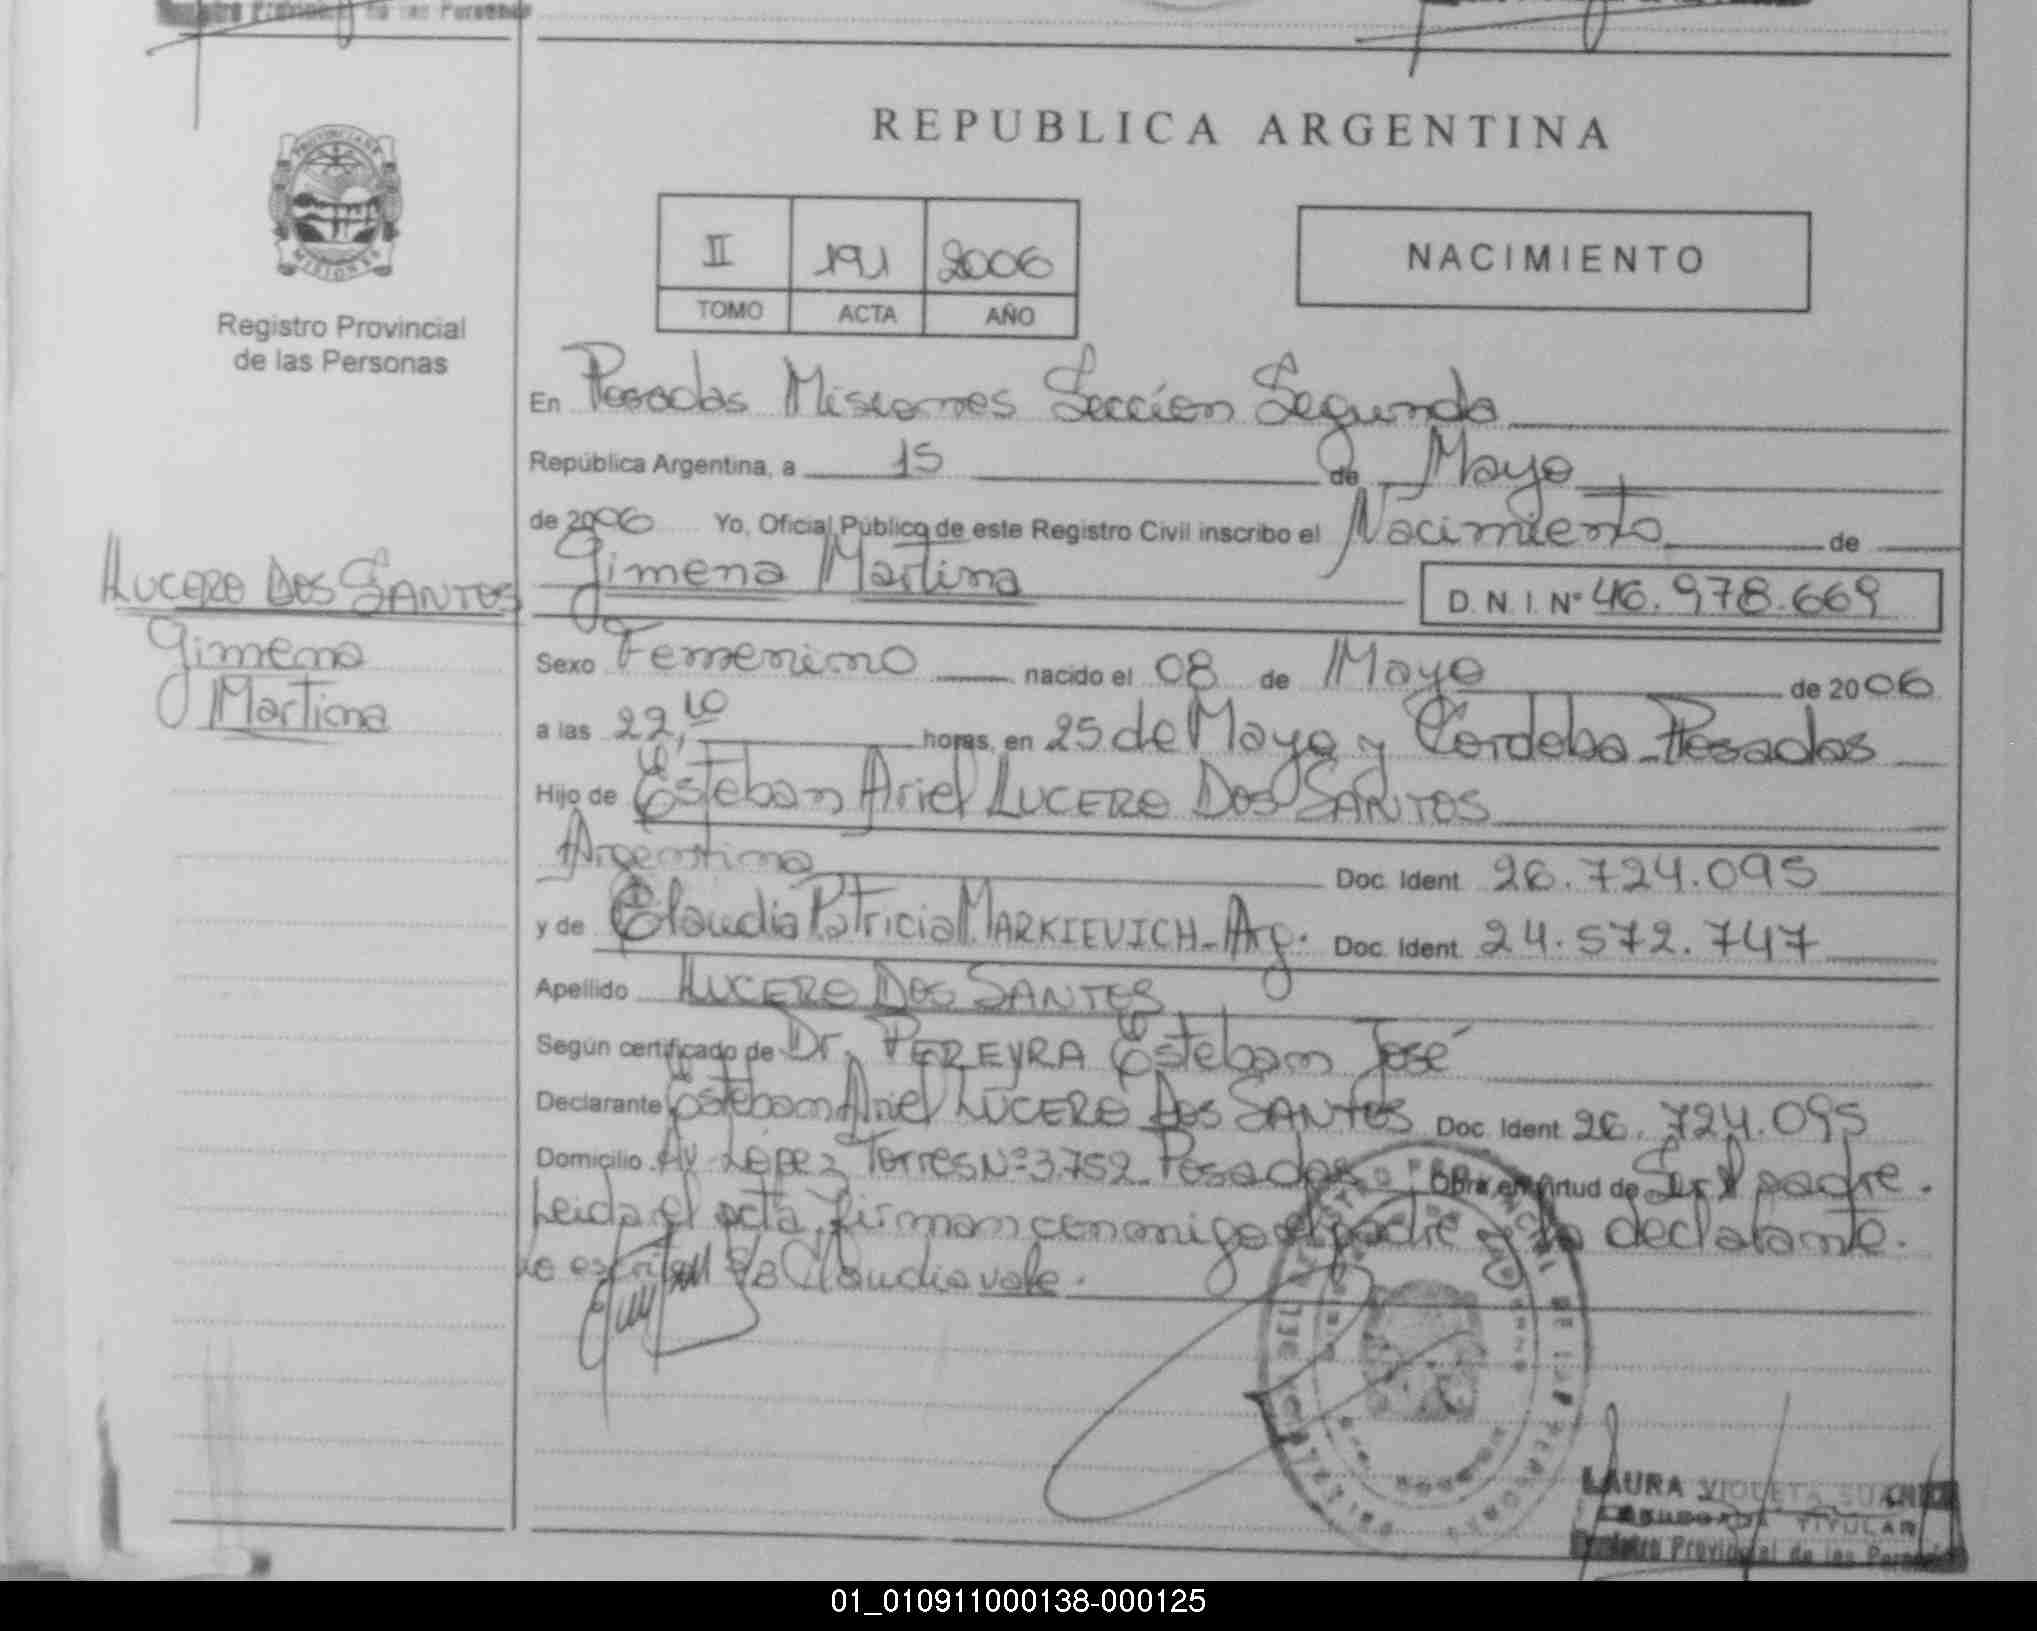 REPUBLICA ARGENTINA
PROVINCIA DE
MISIONES
Registro Provincial
de las Personas
II 191 2006
TOMO ACTA AÑO
NACIMIENTO
En Posadas Misiones Sección Segunda
República Argentina, a 15 de Mayo
de 2006 Yo, Oficial Público de este Registro Civil inscribo el Nacimiento de
Gimena Martina
D. N. I. Nº 46.978.669
LUCERO DOS SANTOS
Gimena
Martina
Sexo Femenino nacido el 08 de Mayo de 2006
a las 22,10 horas, en 25 de Mayo y Cordoba - Posadas
Hijo de Esteban Ariel LUCERO DOS SANTOS
Argentina Doc. Ident. 26.724.095
y de Claudia Patricia MARKIEVICH - Arg. Doc. Ident. 24.572.747
Apellido LUCERO DOS SANTOS
Según certificado de Dr. PEREYRA Esteban José
Declarante Esteban Ariel LUCERO DOS SANTOS Doc. Ident. 26.724.095
Domicilio Av. López Torres Nº 3.752 Posadas Obra en virtud de Ser el padre.
Leida el acta, firman conmigo el padre declarante.
Lo Claudia vale.
LAURA VIOLETA
TITULAR
Registro Provincial de las Personas
01_010911000138-000125